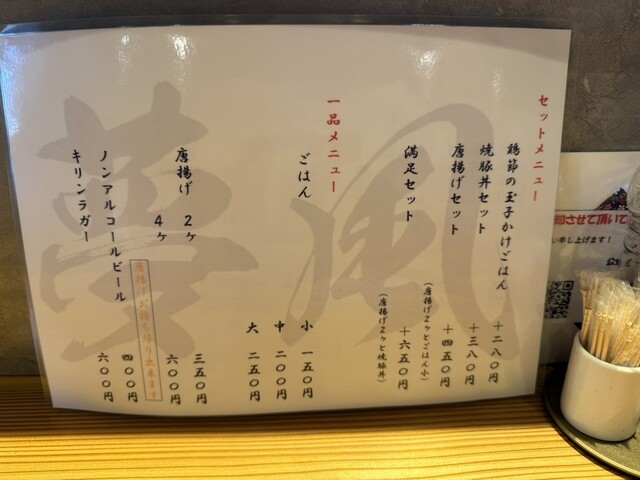 セットメニュー
鶏節の玉子かけごはん +二八〇円
焼豚丼セット +三八〇円
唐揚げセット +四五〇円
(唐揚げ2ヶとごはん小)
満足セット +六五〇円
(唐揚げ2ヶと焼豚丼)
一品メニュー
ごはん 小 一五〇円
中 二〇〇円
大 二五〇円
唐揚げ 2ヶ 三五〇円
4ヶ 六〇〇円
唐揚げお持ち帰り出来ます
ノンアルコールビール 四〇〇円
キリンラガー 六〇〇円
風
夢
させて頂いて
い申し上げます!